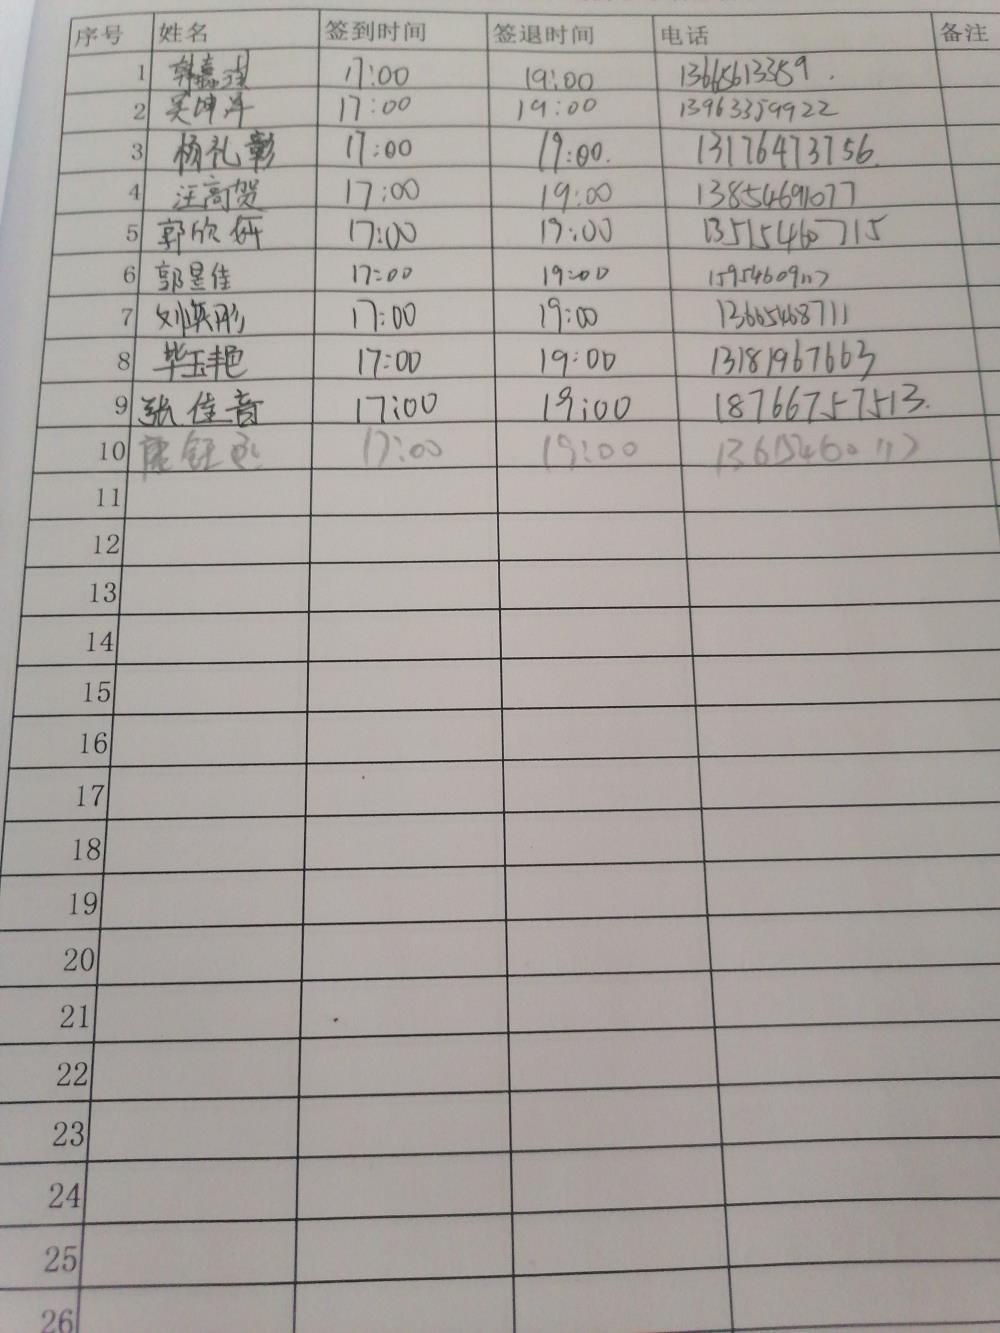 序号 姓名 签到时间 签退时间 电话 备注
1 韩嘉 17:00 19:00 13665613359.
2 吴坤洋 17:00 19:00 13963359922
3 杨礼彰 17:00 19:00. 13176473756.
4 汪高贺 17:00 19:00 13854691077
5 郭欣妍 17:00 19:00 13515460715
6 郭昱佳 17:00 19:00
7 刘英彤 17:00 19:00 13665468711
8 毕玉艳 17:00 19:00 13181967663
9 张佳音 17:00 19:00 18766757513.
10 17:00 19:00
11
12
13
14
15
16
17
18
19
20
21
22
23
24
25
26